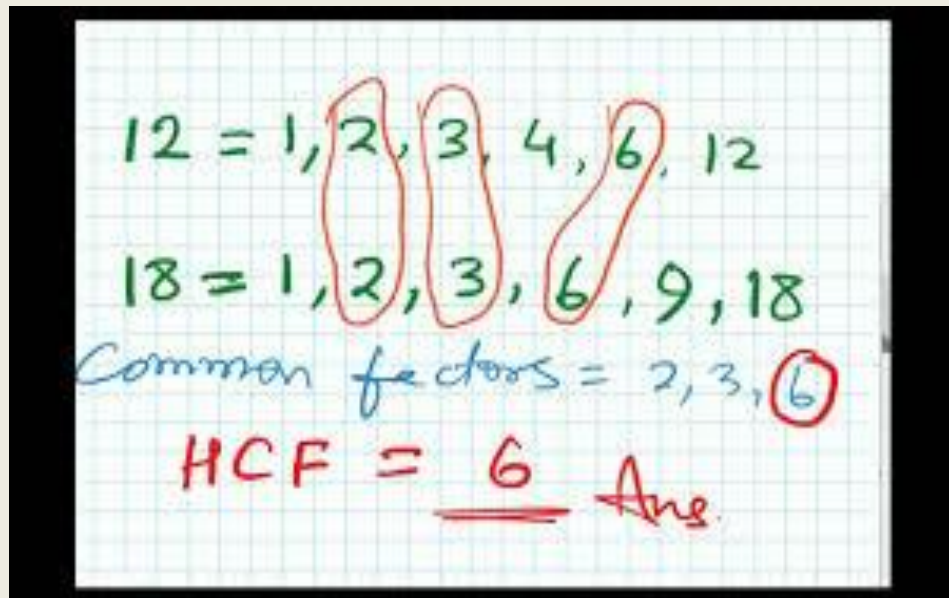 12 = 1, 2, 3, 4, 6, 12
18 = 1, 2, 3, 6, 9, 18
Common factors = 2, 3, 6
HCF = 6 Ans.